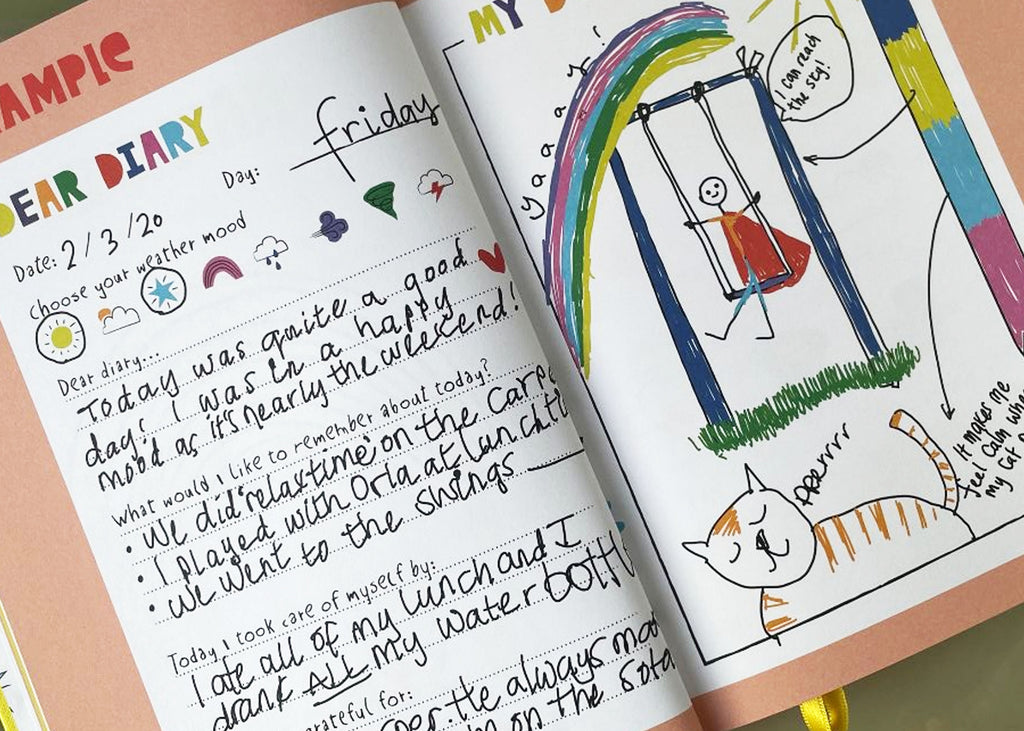 AMPLE
DEAR DIARY
Day: friday
Date: 2/3/20
Choose your weather mood
Dear diary...
Today was quite a good
day! I was in a happy
mood as it's nearly the weekend!
What would I like to remember about today?
• We did 'relaxtime' on the
• I played with Orla at
• We went to the swings
Today I took care of myself by:
I ate all of my lunch and I
drank ALL my water
for:
He always
on the
MY
yaaay!
I can reach
the sky!
prerrrr
It makes me
feel calm
my cat